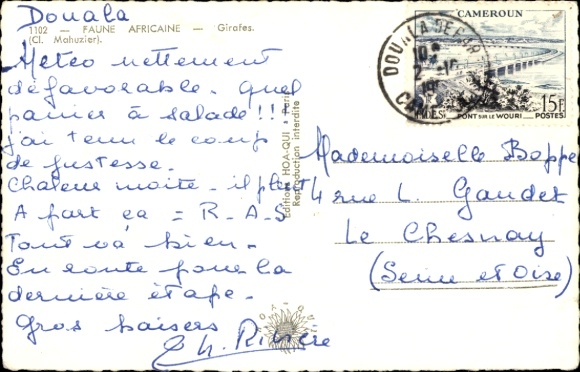 Douala
1102 — FAUNE AFRICAINE — Girafes.
(Cl. Mahuzier).
Météo nettement
défavorable. Quel
panier à salade!!!
j'ai tenu le coup
de justesse.
Chaleur moite - il pleut
A part ça = R-A-S
Tout va bien -
En route pour la
dernière étape -
Gros baisers
Ch. Rivière
Editions HOA-QUI - Paris
Reproduction interdite
CAMEROUN
15F
PONT SUR LE WOURI
POSTES
DOUALA
Mademoiselle Boppe
4 rue L. Gaudet
Le Chesnay
(Seine et Oise)